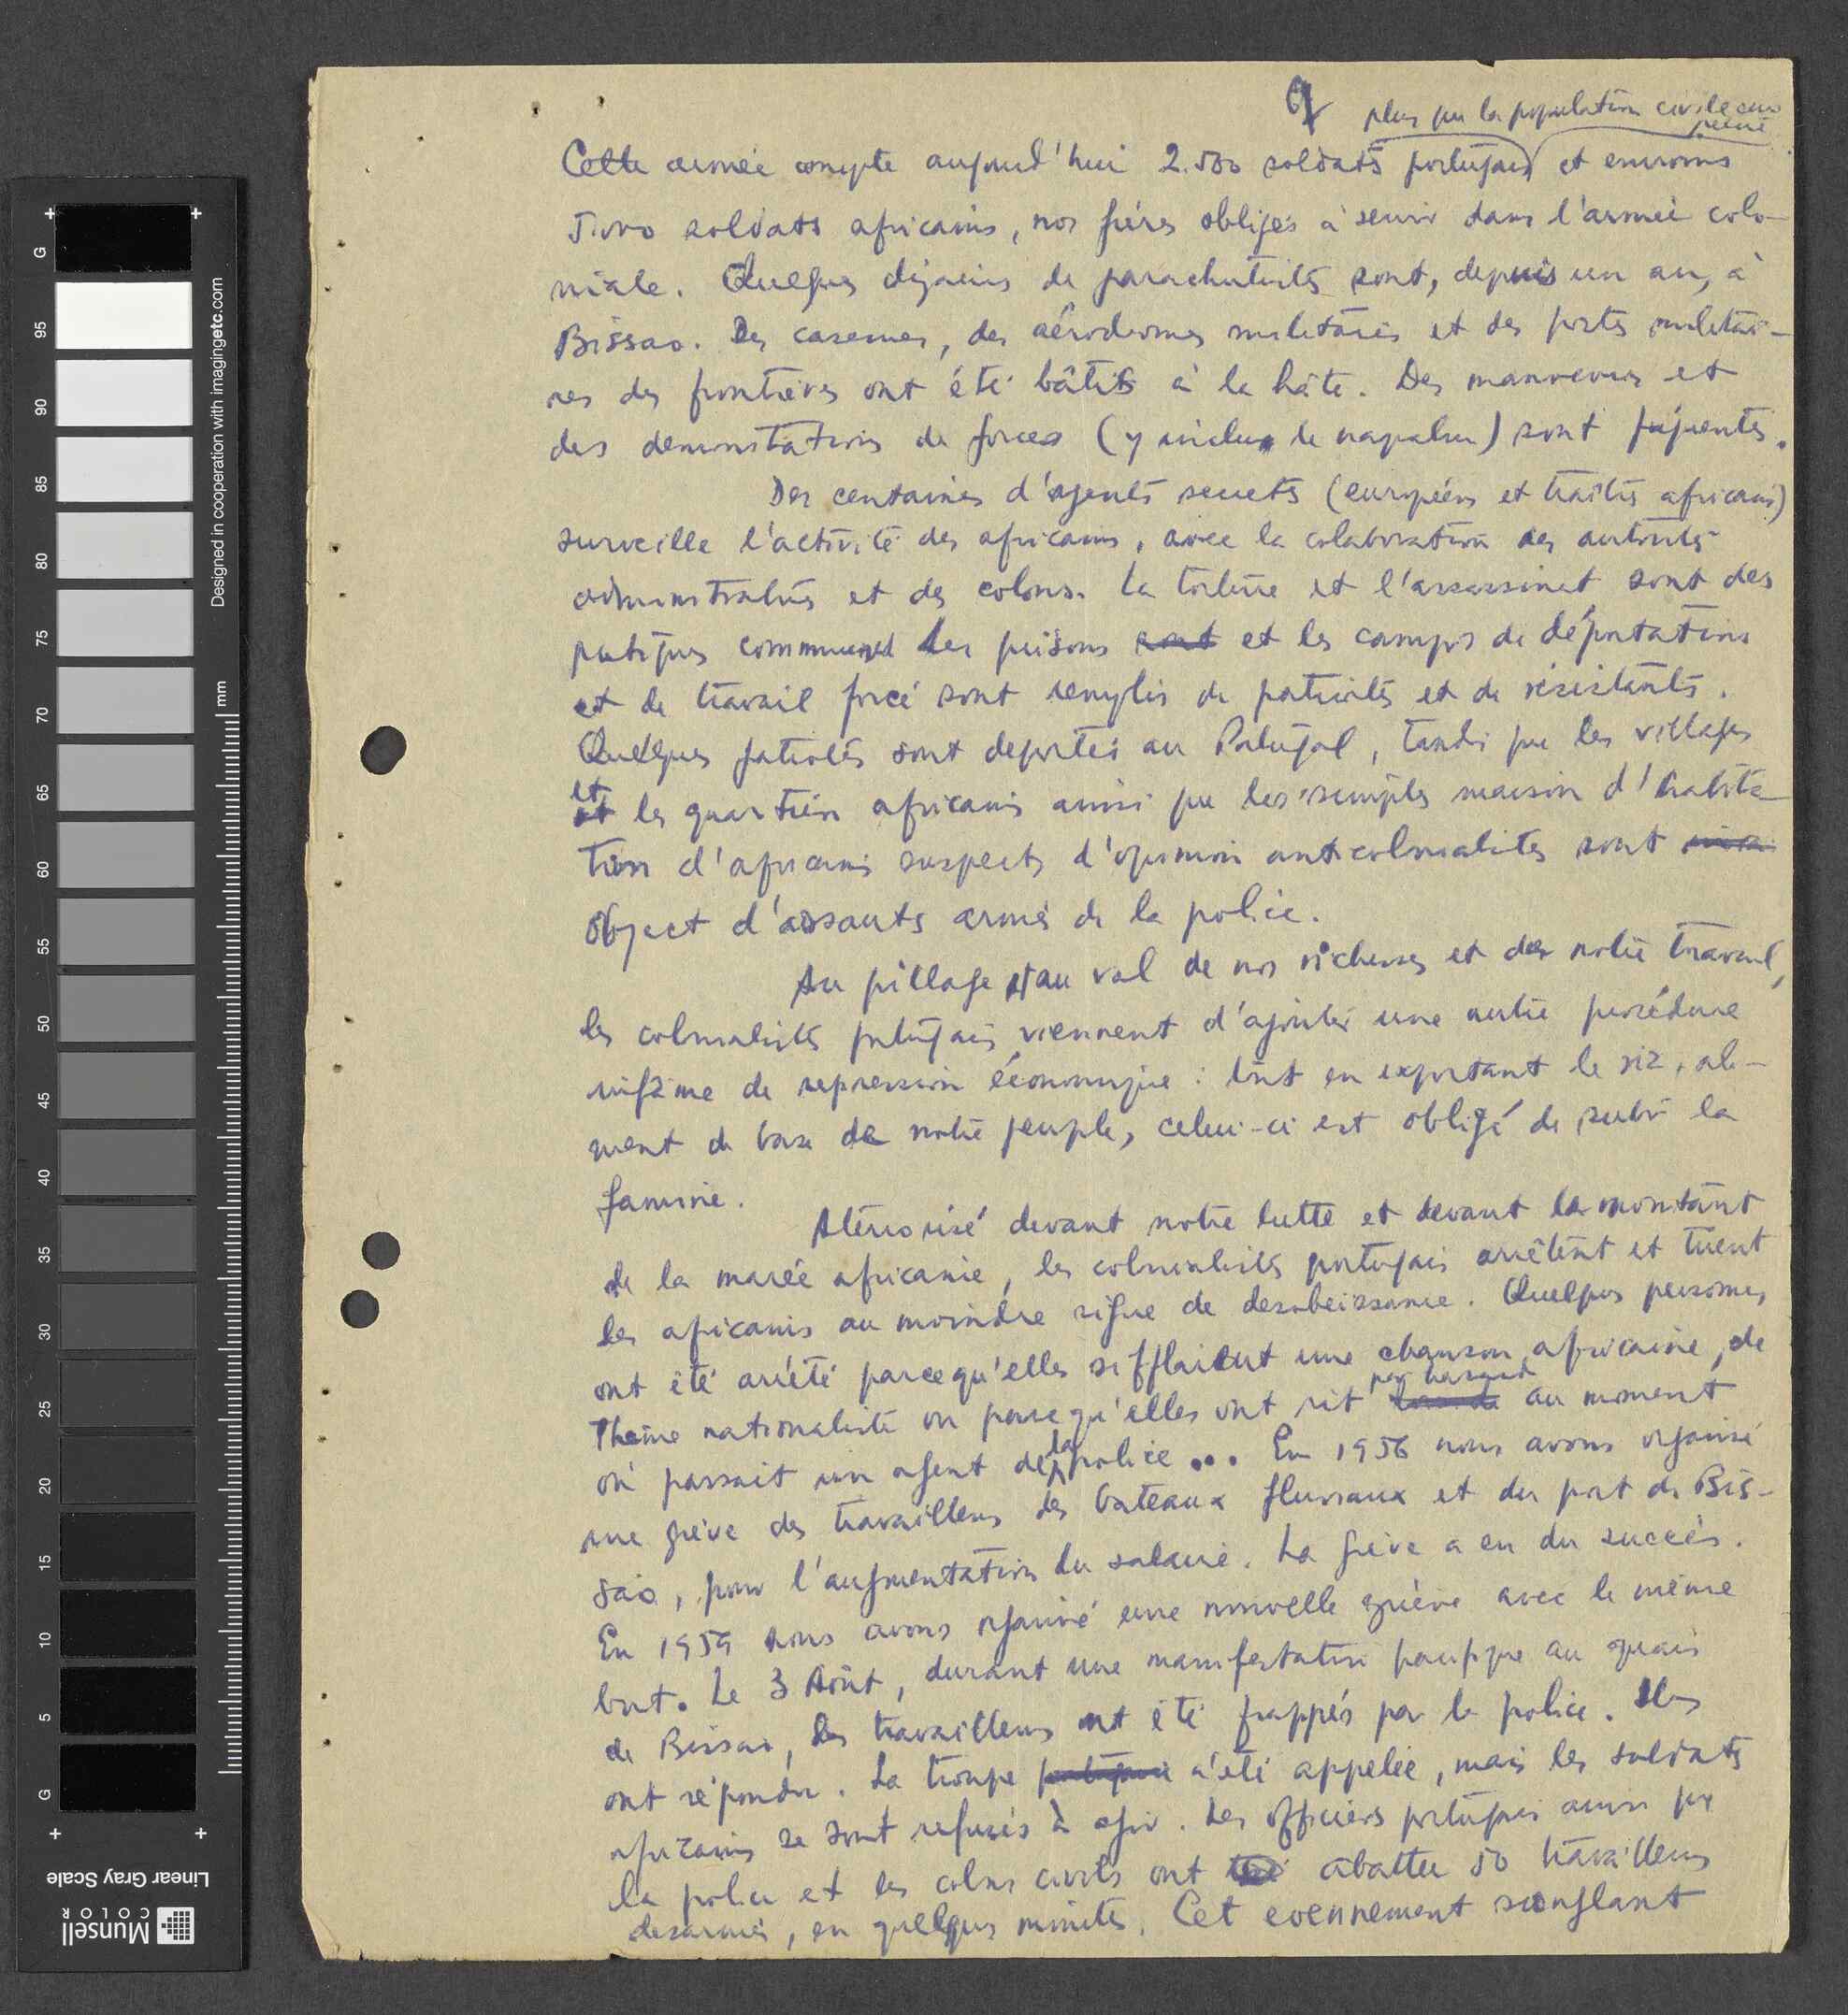 9
plus que la population civile euro
péene
Cette armée compte aujourd'hui 2.500 soldats portugais et environs
soldats africains, nos frères obligés à servir dans l'armée colo-
niale. Quelques dizaines de parachutistes sont, depuis un an, à
Bissao. Des casernes, des aérodromes militaires et des postes militai-
res des frontières ont été bâtis à la hâte. Des manœuvres et
des demonstrations de forces (y inclus le napalm) sont fréquentes.
Des centaines d'agents secrets (européens et traîtres africains)
surveille l'activité des africains, avec la colaboration des autorités
administratives et des colons. La torture et l'assassinat sont des
pratiques communes. Les prisons sont et les camps de déportations
et de travail forcé sont remplis de patriotes et de résistants.
Quelques patriotes sont deportés au Portugal, tandis que les villages
et les quartiers africains ainsi que les simples maison d'habita-
tion d'africains suspects d'opinion anticolonialistes sont
object d'assauts armés de la police.
Au pillage et au vol de nos richesses et de notre travail,
les colonialistes portugais viennent d'ajouter une autre procédure
infâme de repression économique : tout en exportant le riz, ali-
ment de base de notre peuple, celui-ci est obligé de subir la
famine.
Atérrorisé devant notre lutte et devant la montant
de la marée africaine, les colonialistes portugais arrêtent et tuent
les africains au moindre signe de desobeissance. Quelques personnes
ont été arrêté parcequ'elles sifflaient une chanson africaine, de
thème nationaliste ou parcequ'elles ont rit par hasard au moment
où passait un agent de la police... En 1956 nous avons organisé
une grève des travailleurs des bateaux fluviaux et du port de Bis-
sao, pour l'augmentation du salaire. La grève a eu du succès.
En 1959 nous avons organisé une nouvelle grève avec le même
but. Le 3 Août, durant une manifestation pacifique au quais
de Bissao, les travailleurs ont été frappés par la police. Ils
ont répondu. La troupe portugaise a été appelée, mais les soldats
africains se sont refusés à agir. Les officiers portugais ainsi que
la police et les colons civils ont tué abattu 50 travailleurs
desarmés, en quelques minutes. Cet evennement sanglant
G
95
90
85
80
75
70
65
60
55
50
45
40
35
30
25
20
15
10
5
G
mm
Designed in cooperation with imagingetc.com
Linear Gray Scale
Munsell
COLOR